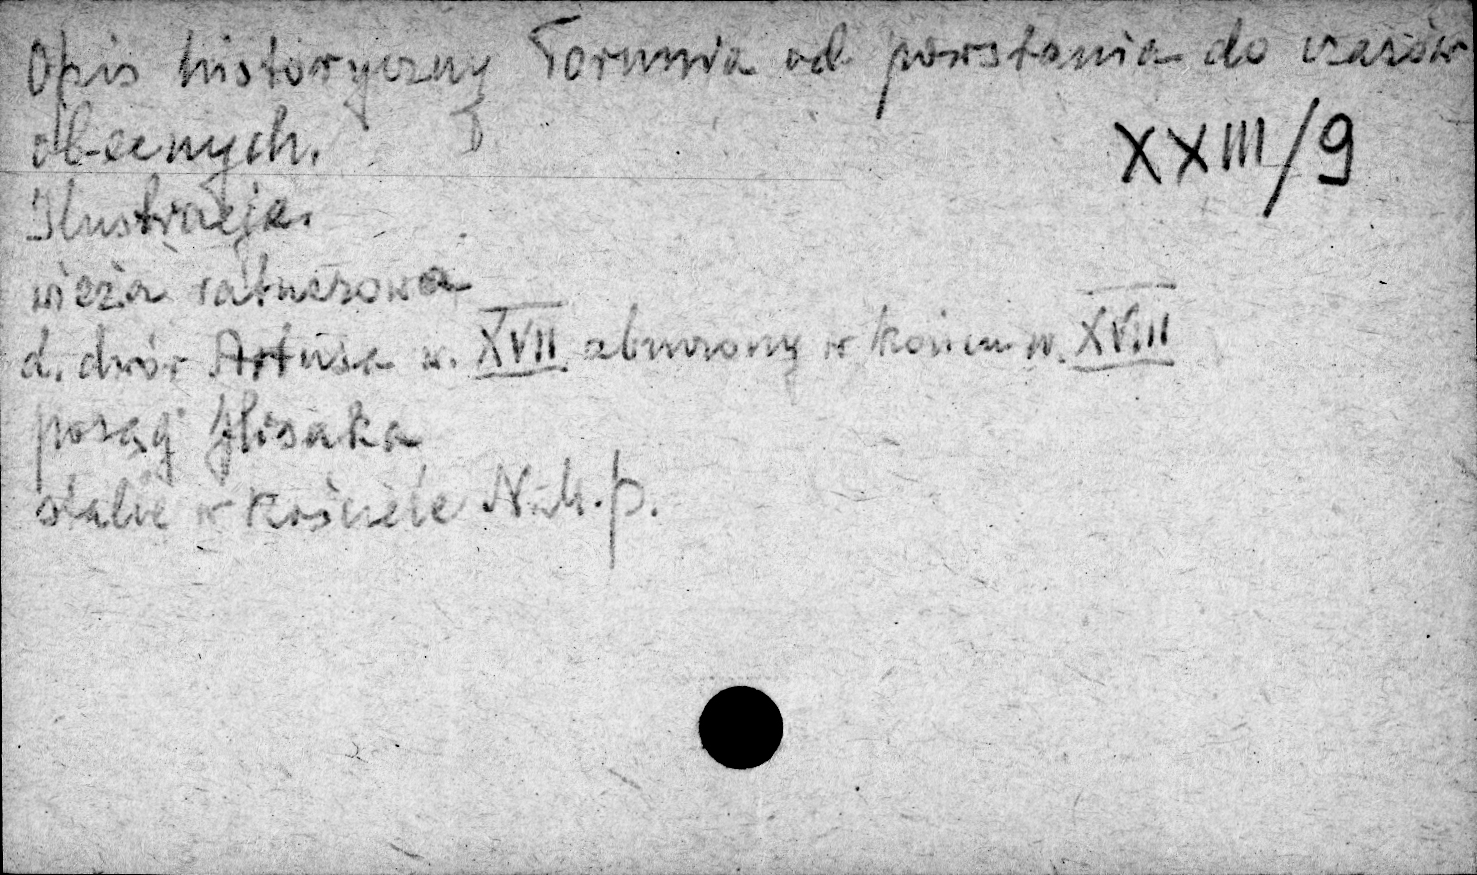 Opis historyczny Torunia od powstania do czasów
obecnych.
XXIII/9
Ilustracja.
wieża ratuszowa
d. dwór Artusa w. XVII zburzony w końcu w. XVIII
posąg flisaka
stalle w kościele N.M.P.